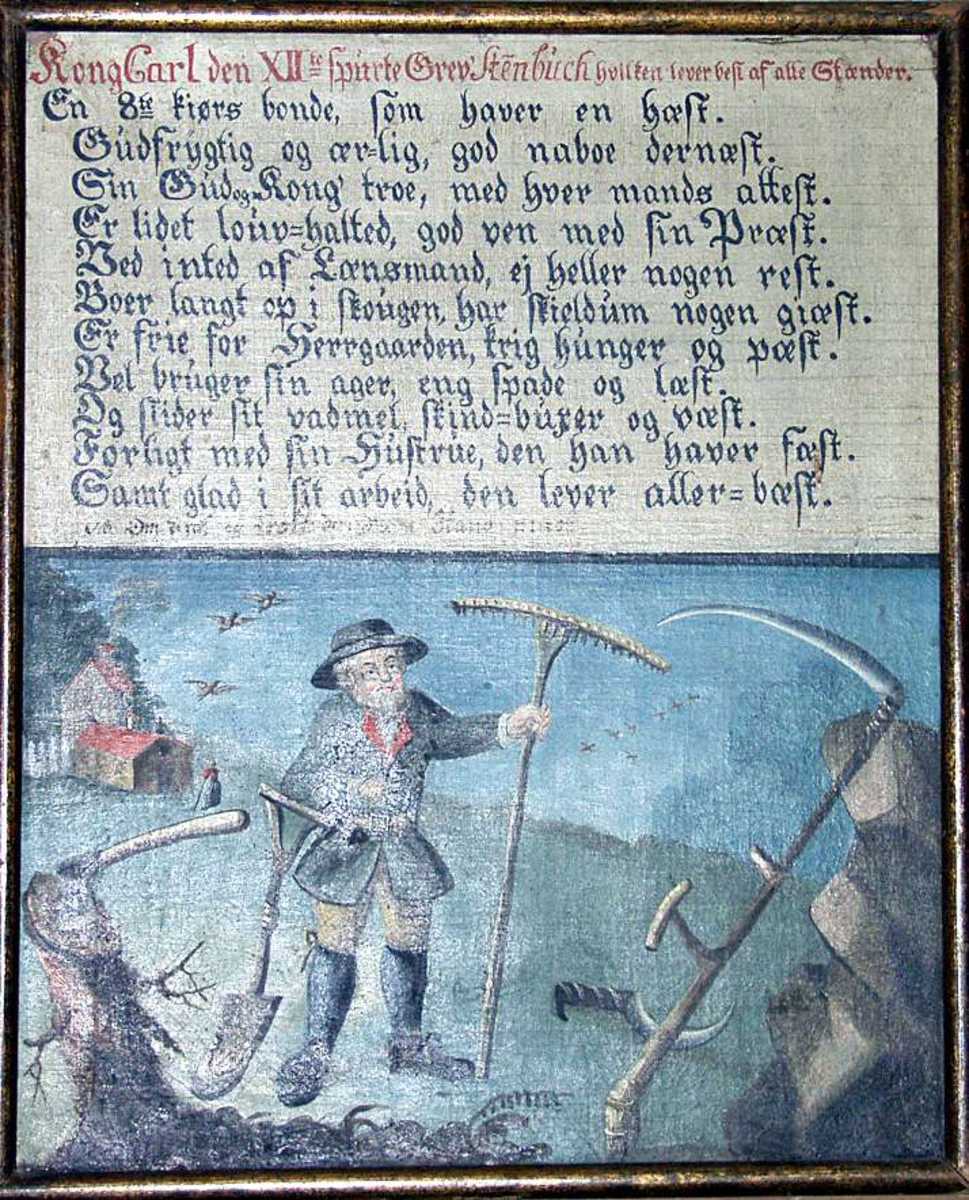 Kong Carl den XII te spurte Grev Stēnbuch hvilken lever best af alle Stænder.
En 8te kiørs bonde, som haver en hæst.
Gudfrygtig og ær-lig, god naboe dernæst.
Sin Gud og Kong troe, med hver mands attest.
Er lidet louv=halted, god ven med sin Præst.
Ved inted af Lænsmand, ej heller nogen rest.
Boer langt op i skougen, har skieldum nogen giæst.
Er frie for Herrgaarden, krig hunger og pæst.
Vel bruger sin ager, eng spade og læst.
Og slider sit vadmel, skind=buxer og væst.
Forligt med sin Hustrue, den han haver fæst.
Samt glad i sit arbeid, den lever aller=bæst.
og